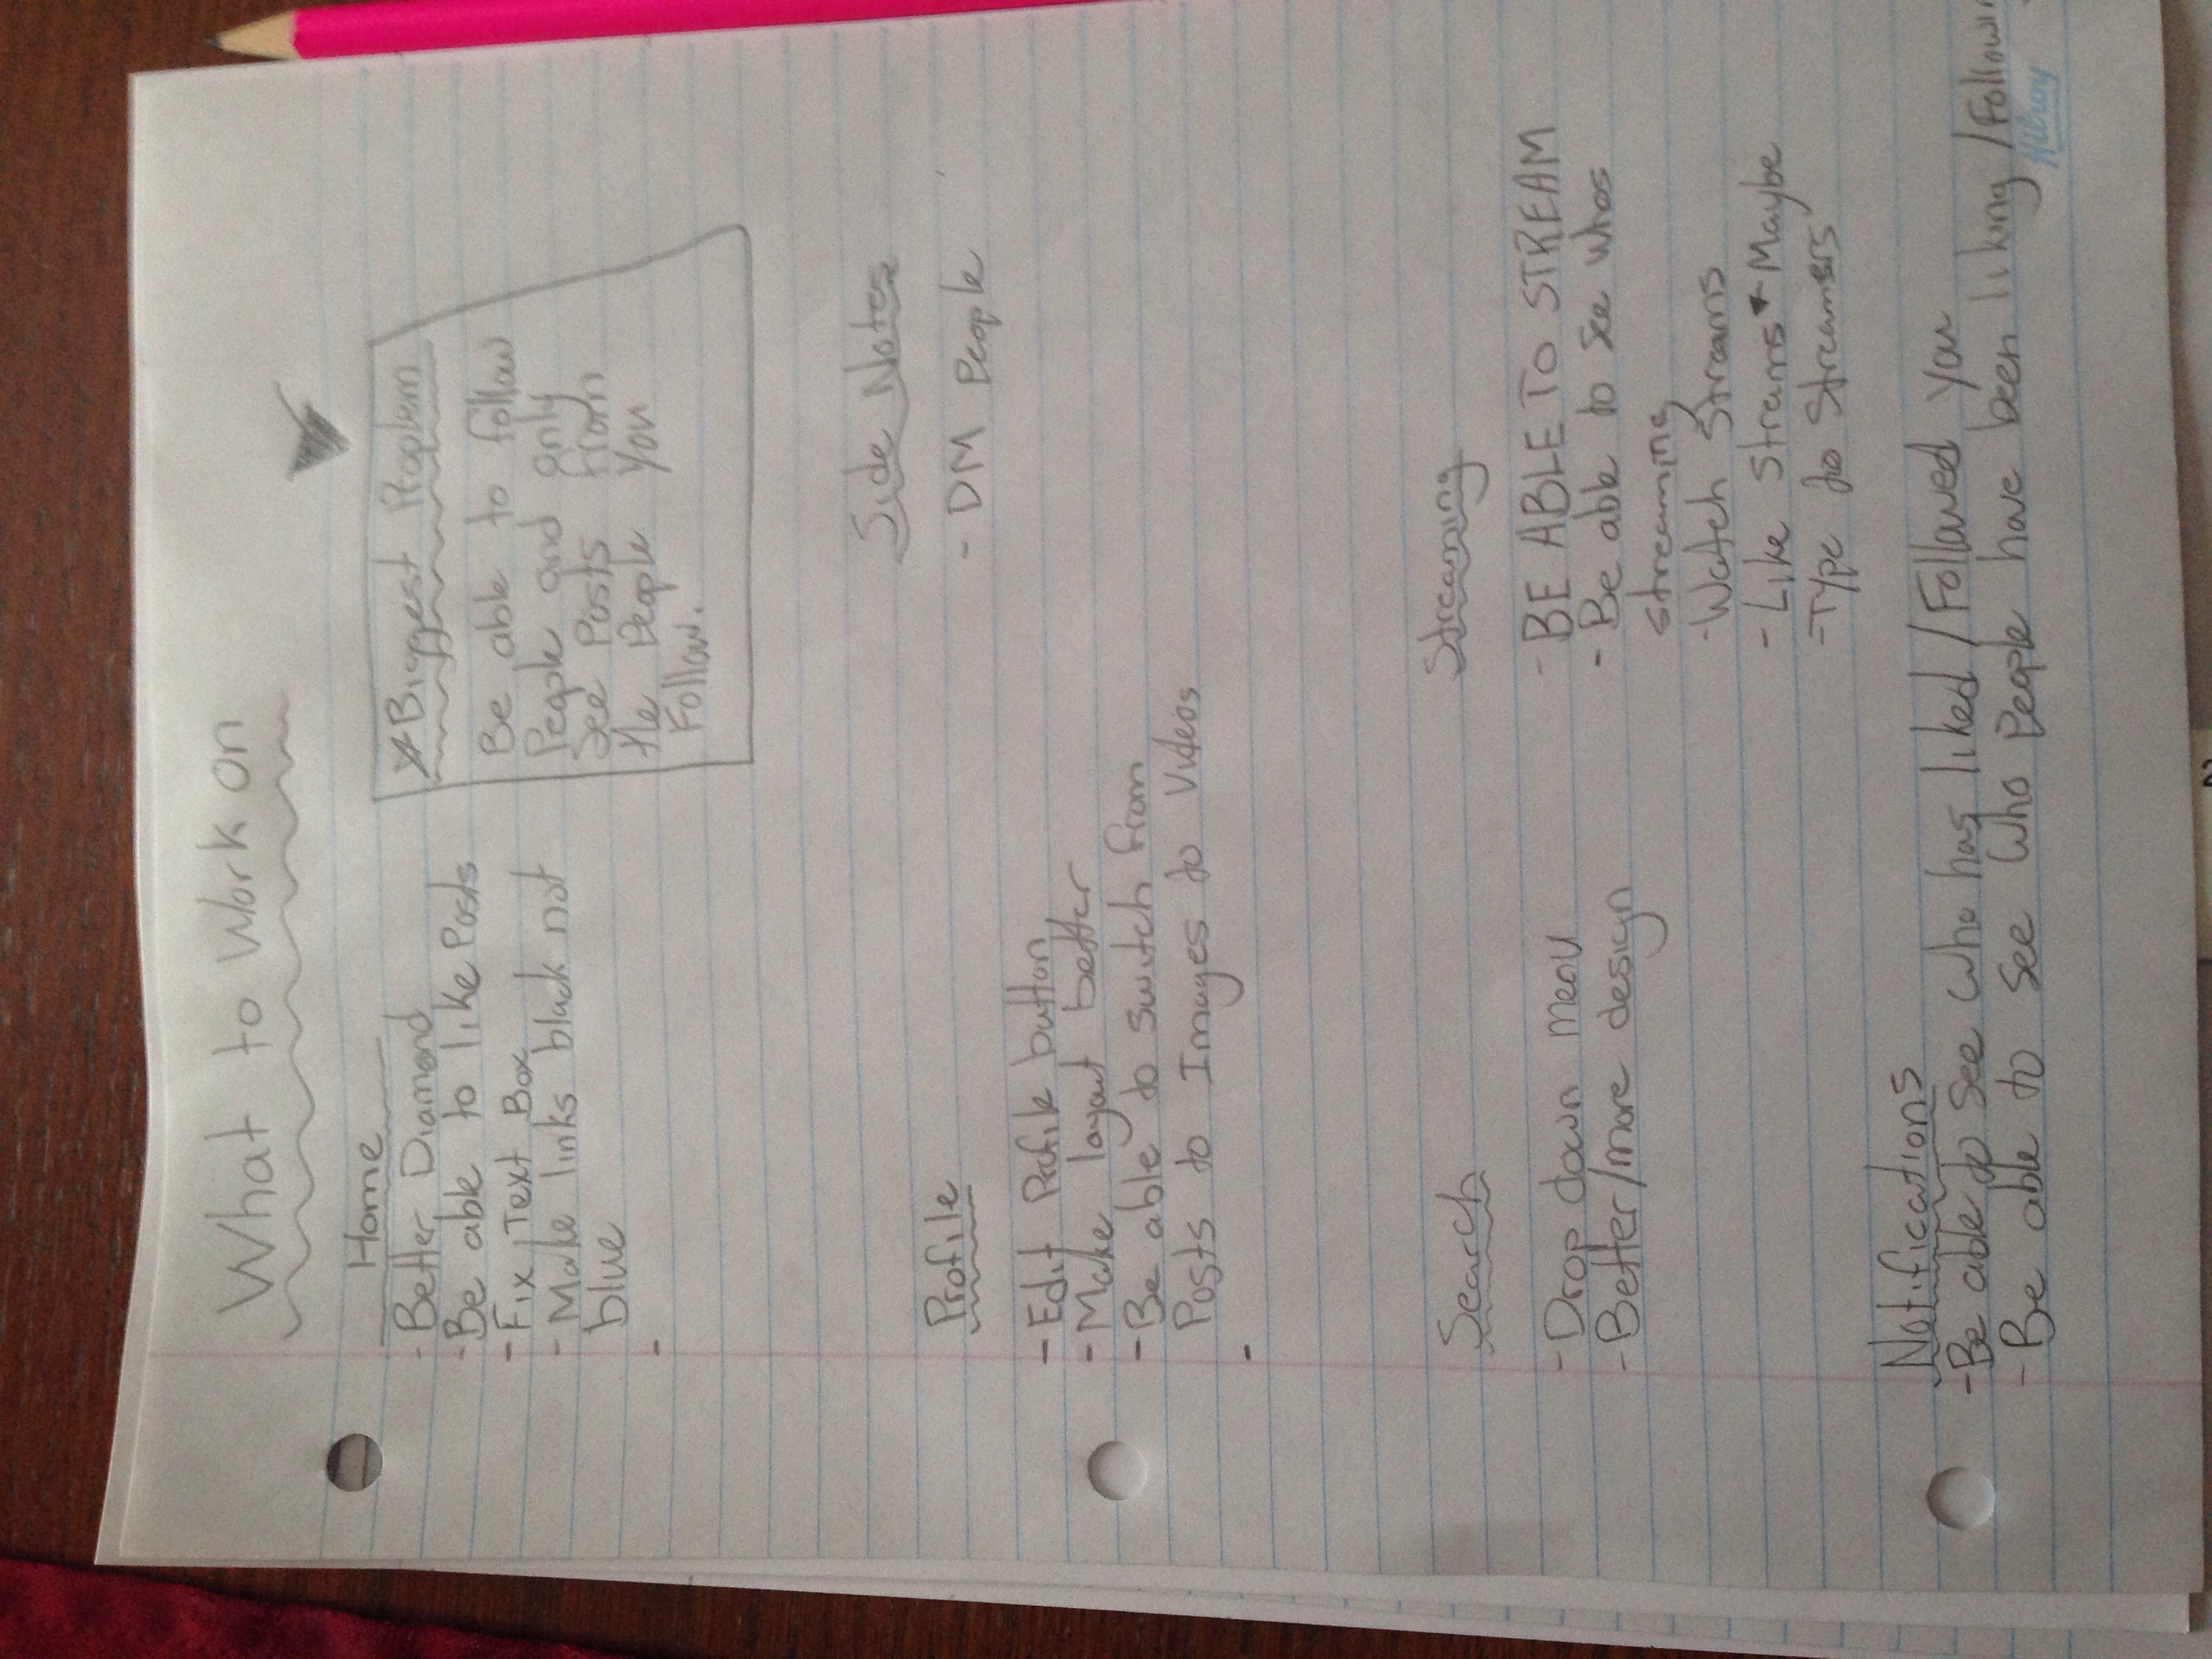 What to Work on
Home
- Better Diamond
- Be able to like Posts
- Fix Text Box
- Make links black not
blue
-
Biggest Problem
Be able to follow
People and only
See Posts from
the People you
Follow.
Side Notes
- DM People
Profile
- Edit Profile button
- Make layout better
- Be able to switch from
Posts to Images to Videos
-
Search
- Drop down menu
- Better/more design
Streaming
- BE ABLE TO STREAM
- Be able to see whos
streaming
- Watch Streams
- Like Streams Maybe
- Type to Streamers
Notifications
- Be able to see who has liked / Followed you
- Be able to see who People have been liking /
Hilroy